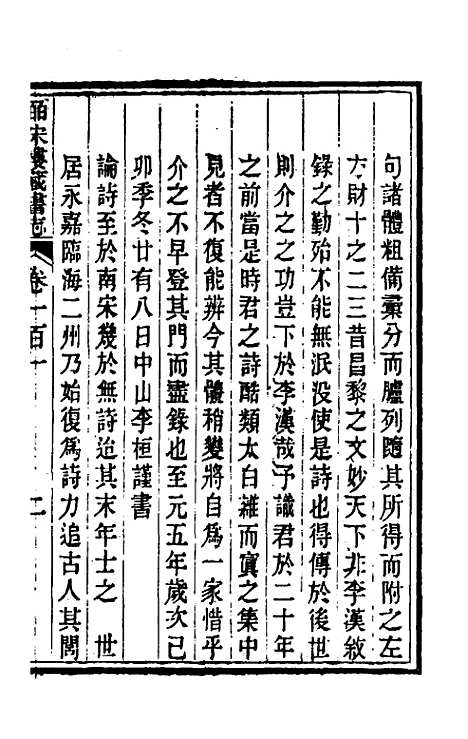 句諸體粗備彚分而臚列隨其所得而附之左
方財十之二三昔昌黎之文妙天下非李漢敘
錄之勤殆不能無泯没使是詩也得傳於後世
則介之之功豈下於李漢哉予識君於二十年
之前當是時君之詩酷類太白雜而寘之集中
見者不復能辨今其體稍變將自爲一家惜乎
介之不早登其門而盡錄也至元五年歲次已
卯季冬廿有八日中山李桓謹書
論詩至於南宋幾於無詩迨其末年士之 世
居永嘉臨海二州乃始復爲詩力追古人其閎
皕宋樓藏書志 卷一百一